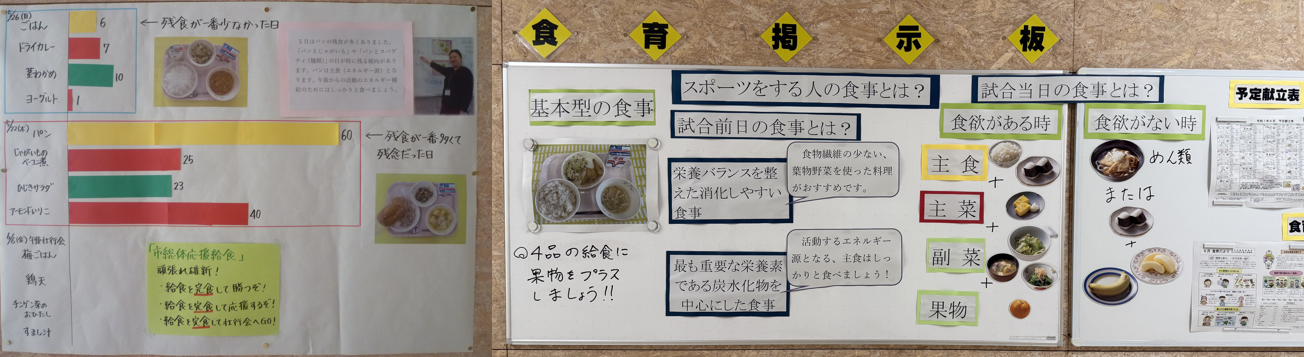 5/26(月)
ごはん
6
ドライカレー
7
茎わかめ
10
ヨーグルト
1
←残食が一番少なかった日
5月はパンの残食が多くありました。
パンは主食(エネルギー源)とな
ります。午後からの活動のエネルギー補
給のためにはしっかりと食べましょう。
パン
60
じゃがいもの
ベーコン煮
25
ひじきサラダ
23
アーモンドいりこ
40
←残食が一番多くて
残念だった日
梅ごはん
鶏天
チンゲン菜の
おひたし
すまし汁
「市総体応援給食」
頑張れ維新!
・給食を完食して勝つぞ!
・給食を完食して応援するぞ!
・給食を完食して壮行会へGO!
食育掲示板
基本型の食事
◎4品の給食に
果物をプラス
しましょう!!
スポーツをする人の食事とは?
試合前日の食事とは?
栄養バランスを整
えた消化しやすい
食事
食物繊維の少ない、
葉物野菜を使った料理
がおすすめです。
最も重要な栄養素
である炭水化物を
中心にした食事
活動するエネルギー
源となる、主食はしっ
かりと食べましょう!
試合当日の食事とは?
食欲がある時
主食
+
主菜
+
副菜
+
果物
食欲がない時
めん類
または
+
予定献立表